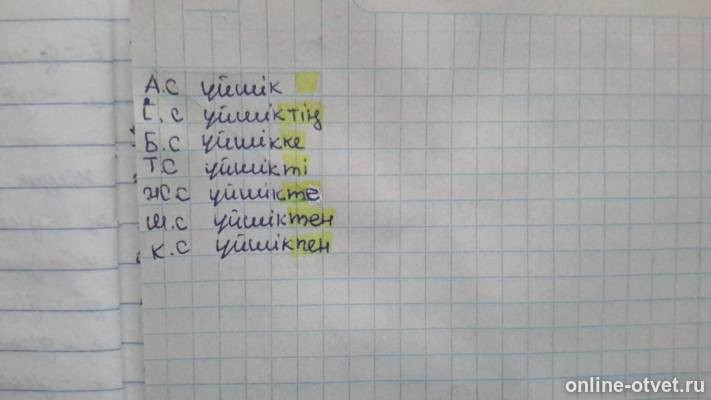 А.С үйшік
І.С үйшіктің
Б.С үйшікке
Т.С үйшікті
Ж.С үйшікте
Ш.С үйшіктен
К.С үйшікпен
online-otvet.ru